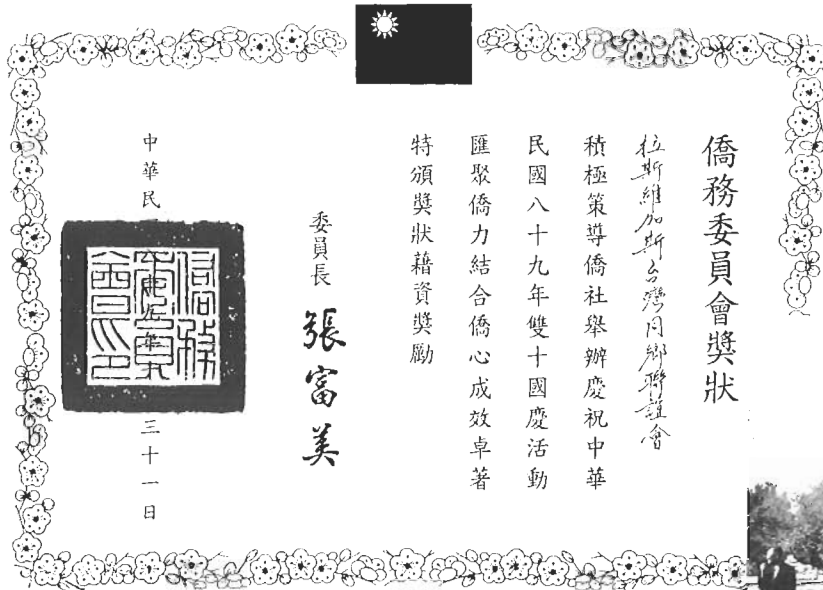 僑務委員會獎狀
拉斯維加斯台灣同鄉聯誼會
積極策導僑社舉辦慶祝中華
民國八十九年雙十國慶活動
匯聚僑力結合僑心成效卓著
特頒獎狀藉資獎勵
委員長 張富美
中華民
三十一日
僑務委員會印